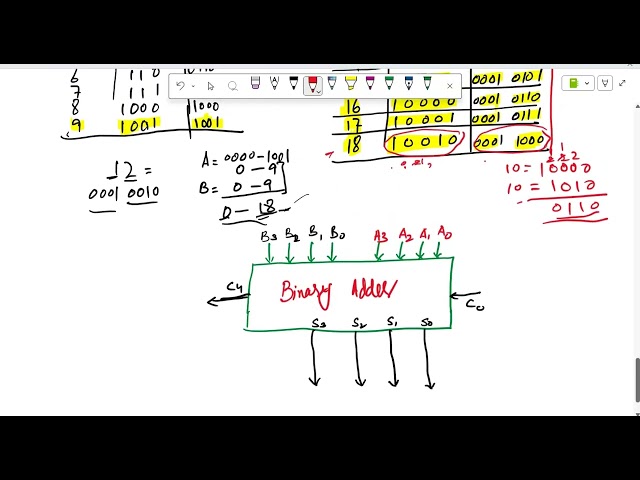 6 | 1 1 0
7 | 1 1 1
8 | 1000 | 1000
9 | 1001 | 1001
0001 0101
16 | 10000 | 0001 0110
17 | 10001 | 0001 0111
18 | 10010 | 0001 1000
12 =
0001 0010
A = 0000-1001
0 - 9
B = 0 - 9
0 - 18
1
2 2 2
10 = 10000
10 = 1010
0110
B3 B2 B1 B0 A3 A2 A1 A0
C4 Binary Adder C0
S3 S2 S1 S0